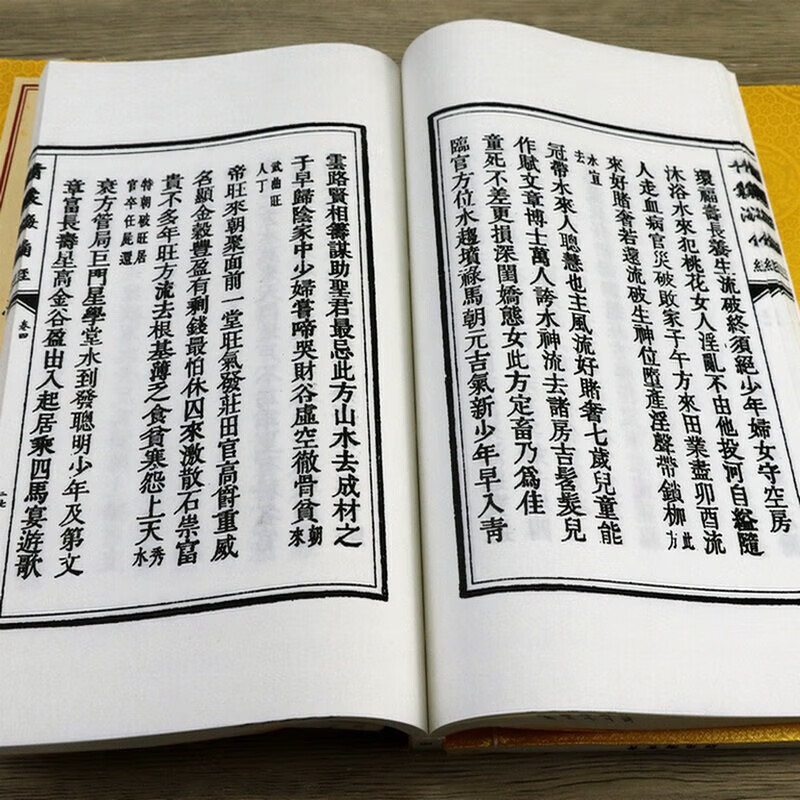 環福壽長養生流破終須絕少年婦女守空房
沐浴水來犯桃花女人淫亂不由他投河自縊隨
人走血病官災破敗家子午方來田業盡卯酉流
來好賭奢若還流破生神位墮產淫聲帶鎖枷此方
水宜去
冠帶水來人聰慧也主風流好賭奢七歲兒童能
作賦文章博士萬人誇水神流去諸房吉髫髮兒
童死不差更損深閨嬌態女此方定畜乃為佳
臨官方位水趨墳祿馬朝元吉氣新少年早入青
雲路賢相籌謀助聖君最忌此方山水去成材之
子早歸陰家中少婦嘗啼哭財谷虛空徹骨貧朝來
武曲旺人丁
帝旺來朝聚面前一堂旺氣發莊田官高爵重威
名顯金穀豐盈有剩錢最怕休囚來激散石崇富
貴不多年旺方流去根基薄乏食貧寒怨上天秀水
特朝破旺居官卒任屍還
衰方管局巨門星學堂水到發聰明少年及第文
章官長壽星高金谷盈出入起居乘四馬宴遊歌
卷四
二七